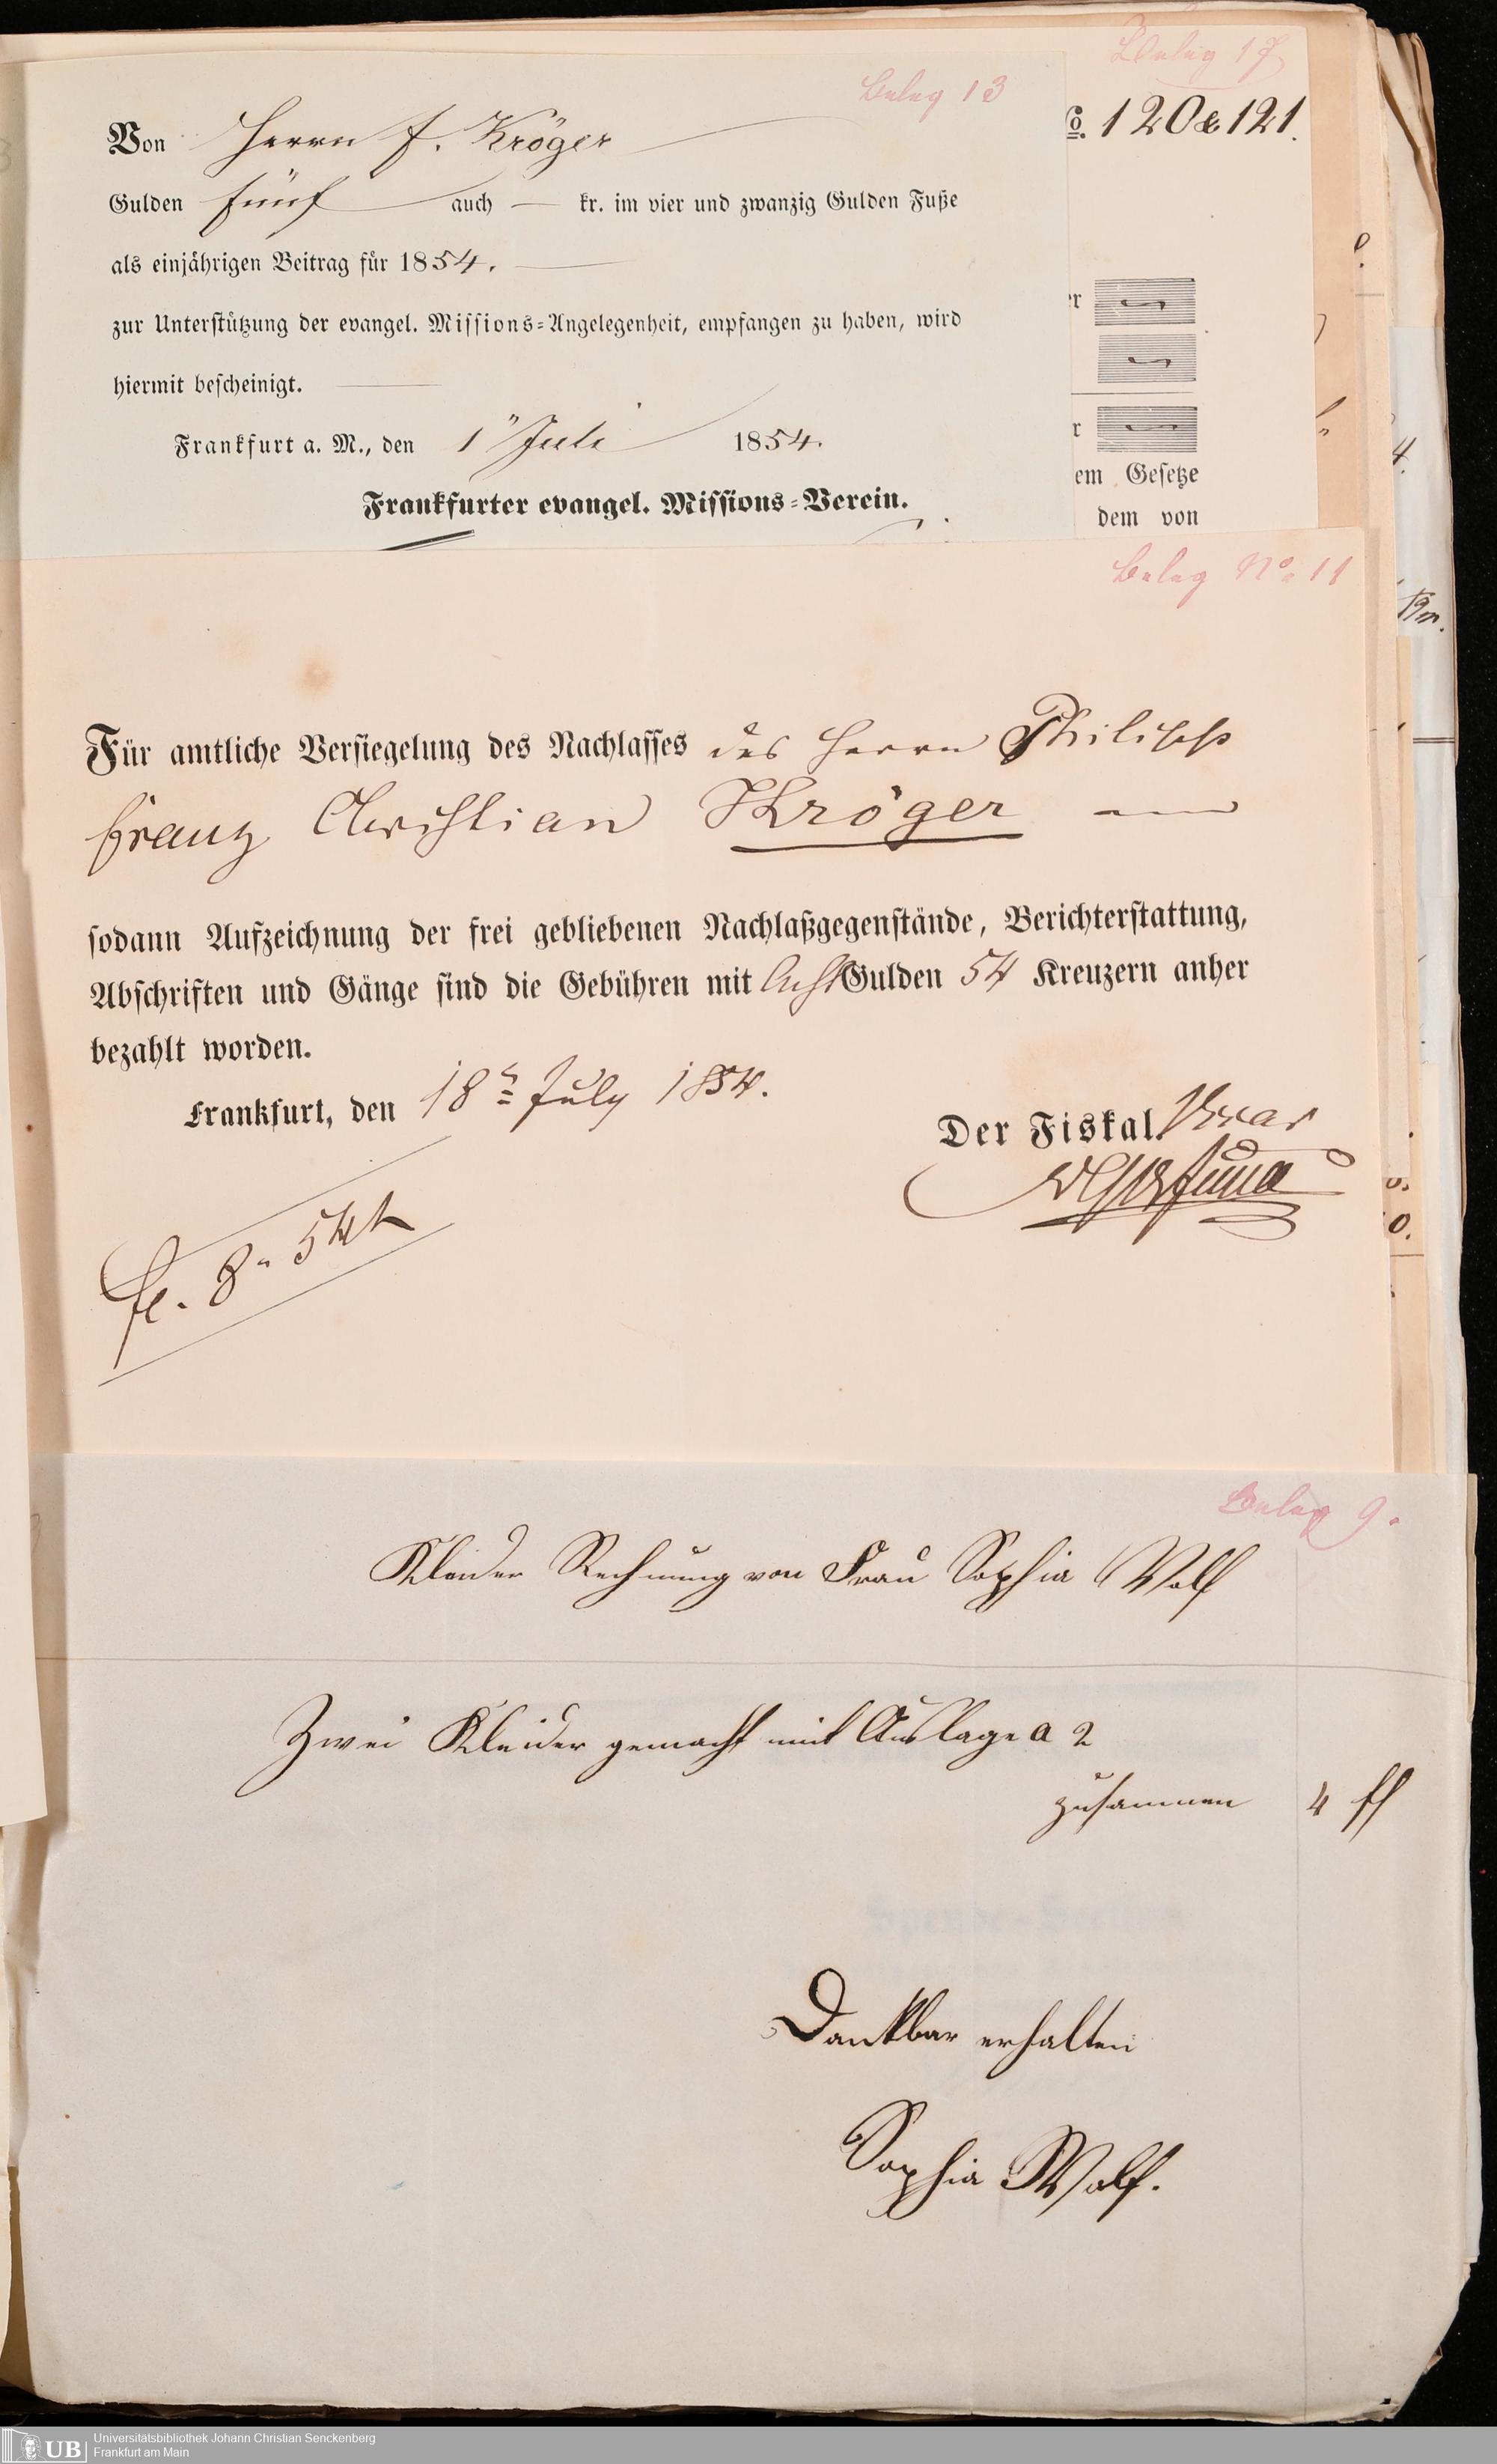 Beleg 17
No. 120 & 121.
Beleg 13
Von Herrn F. Kröger
Gulden fünf auch — kr. im vier und zwanzig Gulden Fuße
als einjährigen Beitrag für 1854.
zur Unterstützung der evangel. Missions-Angelegenheit, empfangen zu haben, wird
hiermit bescheinigt.
Frankfurt a. M., den 1" Juli 1854.
Frankfurter evangel. Missions-Verein.
em Gesetze
dem von
Beleg No. 11
Für amtliche Versiegelung des Nachlasses des Herrn Philipp
Franz Christian Kröger
sodann Aufzeichnung der frei gebliebenen Nachlaßgegenstände, Berichterstattung,
Abschriften und Gänge sind die Gebühren mit Acht Gulden 54 Kreuzern anher
bezahlt worden.
Frankfurt, den 18t July 1854.
Der Fiskal
fl. 8 " 54 k
Beleg 9.
Kleider Rechnung von Frau Sophia Wolf
Zwei Kleider gemacht mit Auslage a 2
zusammen 4 fl
Dankbar erhalten
Sophia Wolf.
UB
Universitätsbibliothek Johann Christian Senckenberg
Frankfurt am Main